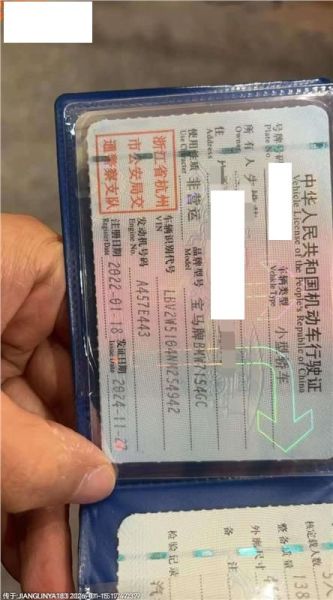 中华人民共和国机动车行驶证
Vehicle License of the People's Republic of China
号牌号
车辆类型 小型轿车
Vehicle Type
所有人
住
Address
使用性质 非营运
Use Character
品牌型号 宝马牌BMW7154GC
Model
浙江省杭州
市公安局交
通警察支队
车辆识别代号
VIN
LBV2W5104NM254942
发动机号码
Engine No.
A457E443
注册日期 2022-01-18
Register Date
发证日期 2024-11-27
Issue Date
核定载人数 5
整备质量 138
外廓尺寸 4
备 注
检验记录